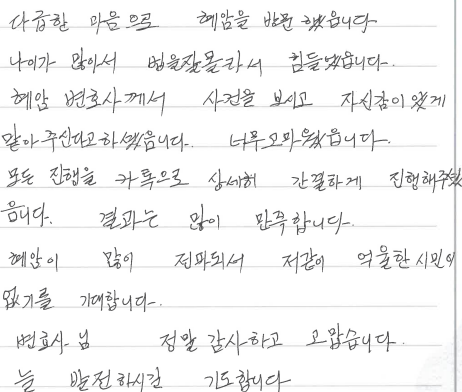 다급한 마음으로 혜암을 방문 했읍니다
나이가 많아서 법을잘몰라서 힘들었읍니다.
혜암 변호사께서 사건을 보시고 자신감이있게
맡아주신다고하셨읍니다. 너무고마웠읍니다.
모든 진행을 카톡으로 상세히 간결하게 진행해주셨
읍니다. 결과는 많이 만족합니다.
혜암이 많이 전파되서 저같이 억울한 시민이
없기를 기대합니다.
변호사님 정말 감사하고 고맙습니다.
늘 발전하시길 기도합니다